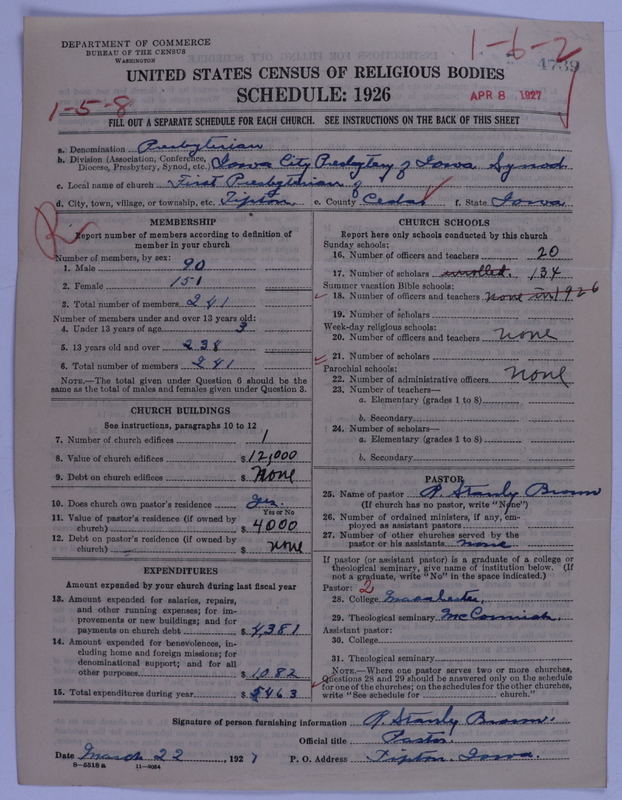 DEPARTMENT OF COMMERCE
BUREAU OF THE CENSUS
WASHINGTON
1-6-2
4739
UNITED STATES CENSUS OF RELIGIOUS BODIES
SCHEDULE: 1926
APR 8 1927
1-5-8
FILL OUT A SEPARATE SCHEDULE FOR EACH CHURCH. SEE INSTRUCTIONS ON THE BACK OF THIS SHEET
a. Denomination Presbyterian
b. Division (Association, Conference, Diocese, Presbytery, Synod, etc.) Iowa City Presbytery of Iowa Synod
c. Local name of church First Presbyterian of
d. City, town, village, or township, etc. Tipton e. County Cedar f. State Iowa
R
MEMBERSHIP
Report number of members according to definition of
member in your church
Number of members, by sex:
1. Male 90
2. Female 151
3. Total number of members 241
Number of members under and over 13 years old:
4. Under 13 years of age 3
5. 13 years old and over 238
6. Total number of members 241
NOTE.—The total given under Question 6 should be the
same as the total of males and females given under Question 3.
CHURCH BUILDINGS
See instructions, paragraphs 10 to 12
7. Number of church edifices 1
8. Value of church edifices $12,000
9. Debt on church edifices $ None
10. Does church own pastor's residence yes.
Yes or No
11. Value of pastor's residence (if owned by
church) $ 4000
12. Debt on pastor's residence (if owned by
church) $ none
EXPENDITURES
Amount expended by your church during last fiscal year
13. Amount expended for salaries, repairs,
and other running expenses; for im-
provements or new buildings; and for
payments on church debt $ 4,381
14. Amount expended for benevolences, in-
cluding home and foreign missions; for
denominational support; and for all
other purposes $ 1082
15. Total expenditures during year $ 5463
CHURCH SCHOOLS
Report here only schools conducted by this church
Sunday schools:
16. Number of officers and teachers 20
17. Number of scholars enrolled. 134
Summer vacation Bible schools:
18. Number of officers and teachers none in 1926
19. Number of scholars
Week-day religious schools:
20. Number of officers and teachers none
21. Number of scholars
Parochial schools:
22. Number of administrative officers none
23. Number of teachers—
a. Elementary (grades 1 to 8)
b. Secondary
24. Number of scholars—
a. Elementary (grades 1 to 8)
b. Secondary
PASTOR
25. Name of pastor R. Stanly Brown
(If church has no pastor, write "None")
26. Number of ordained ministers, if any, em-
ployed as assistant pastors
27. Number of other churches served by the
pastor or his assistants none
If pastor (or assistant pastor) is a graduate of a college or
theological seminary, give name of institution below. (If
not a graduate, write "No" in the space indicated.)
Pastor: 2
28. College
29. Theological seminary McCormick
Assistant pastor:
30. College
31. Theological seminary
NOTE.—Where one pastor serves two or more churches,
Questions 28 and 29 should be answered only on the schedule
for one of the churches; on the schedules for the other churches,
write "See schedule for church."
Signature of person furnishing information R. Stanly Brown.
Official title Pastor.
Date March 22, 1927 P. O. Address Tipton, Iowa.
8-5518a 11-9054